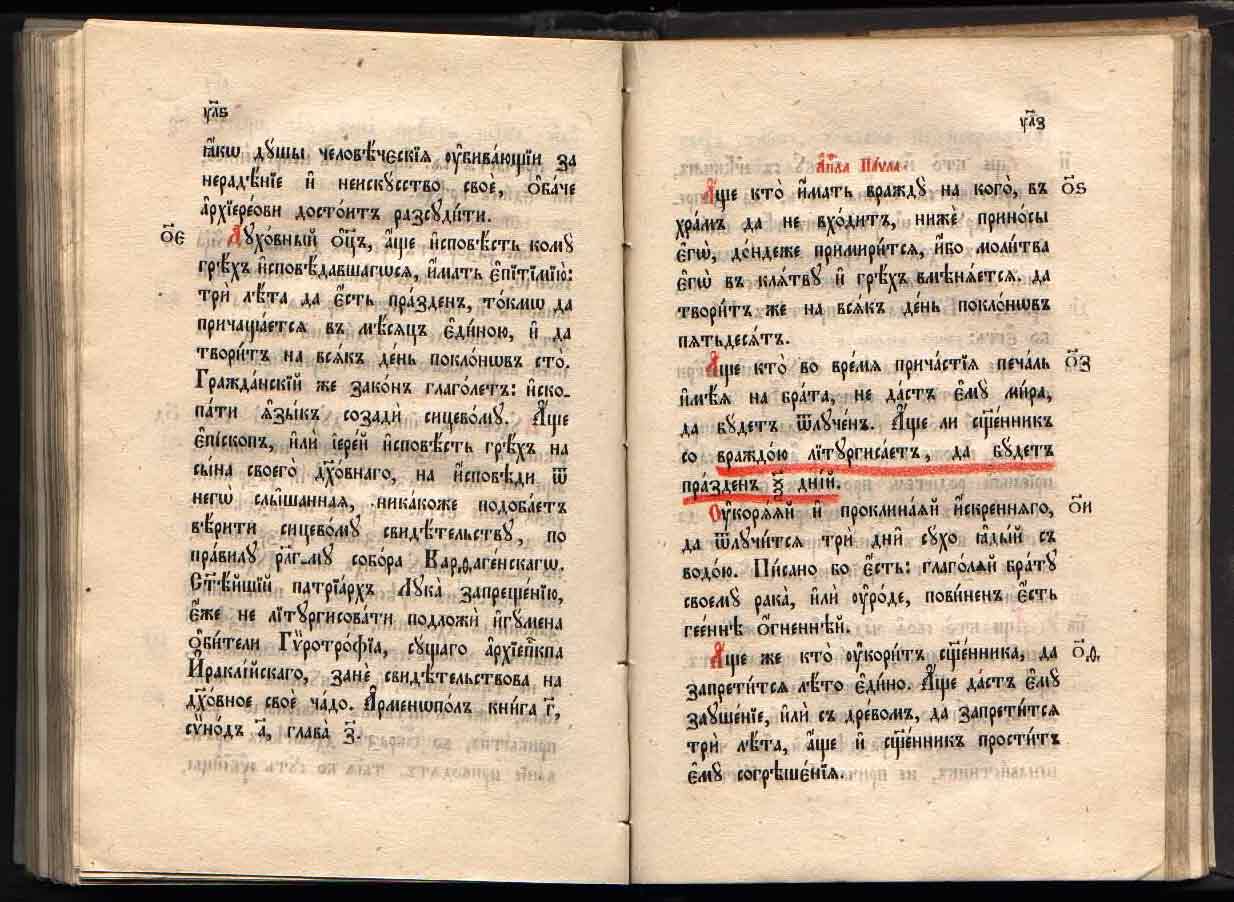 ѱ҃лѕ
ꙗ҆́кѡ дꙋшы̀ человѣ́ческїѧ ᲂу҆бива́ющїи за
нерадѣ́нїе и҆ неискꙋ́сство своѐ, ѻ҆ба́че
а҆рхїере́ови досто́итъ разсꙋди́ти.
о҃е
Дꙋхо́вный ѻ҆ц҃ъ, а҆́ще и҆сповѣ́сть комꙋ̀
грѣ́хъ и҆сповѣ́давшагѡсѧ, и҆́мать є҆пїтїмїю̀:
трѝ лѣ́та да є҆́сть пра́зденъ, то́кмѡ да
причаща́етсѧ въ мѣ́сѧцъ є҆ди́ною, и҆ да
твори́тъ на всѧ́къ де́нь покло́нѡвъ сто̀.
Гражда́нскїй же зако́нъ глаго́летъ: и҆ско-
па́ти ѧ҆зы́къ созадѝ сицево́мꙋ. А҆́ще
є҆пі́скопъ, и҆лѝ і҆ере́й и҆сповѣ́сть грѣ́хъ на
сы́на своего̀ дх҃о́внаго, на и҆спо́вѣди ѿ
негѡ̀ слы́шанная, никако́же подоба́етъ
вѣ́рити сицево́мꙋ свидѣ́тельствꙋ, по
пра́вилꙋ рл҃г-мꙋ собо́ра Карѳаге́нскагѡ.
Ст҃ѣ́йшїй патрїа́рхъ Лꙋка̀ запреще́нїю,
є҆́же не лїтꙋргисова́ти подложѝ и҆гꙋ́мена
ѻ҆би́тели Гѷротро́фїа, сꙋ́щаго а҆рхїеп҃кпа
И҆раклі́йскаго, занѐ свидѣ́тельствова на
дх҃о́вное своѐ ча́до. А҆рменѡпо́лъ кни́га г҃,
сѷно́дъ а҃, глава̀ з҃.
ѱ҃лз
А҆п҃ла Па́ѵла.
А҆́ще кто̀ и҆́мать враждꙋ̀ на кого̀, въ
о҃ѕ
хра́мъ да не вхо́дитъ, нижѐ прино́сы
є҆гѡ̀, до́ндеже примири́тсѧ, и҆́бо моли́тва
є҆гѡ̀ въ клѧ́твꙋ и҆ грѣ́хъ вмѣнѧ́етсѧ. да
твори́тъ же на всѧ́къ де́нь покло́нѡвъ
пѧтьдесѧ́тъ.
А҆́ще кто̀ во вре́мѧ прича́стїѧ печа́ль
о҃з
и҆мѣ́ѧ на бра́та, не да́стъ є҆мꙋ̀ ми́ра,
да бꙋ́детъ ѿлꙋче́нъ. А҆́ще ли сщ҃е́нникъ
со враждо́ю лїтꙋргиса́етъ, да бꙋ́детъ
пра́зденъ ѯ҃ дні́й.
Оу҆корѧ́ѧй и҆ проклина́ѧй и҆́скреннѧго,
о҃и
да ѿлꙋчи́тсѧ трѝ днѝ сꙋ́хо ꙗ҆ды́й съ
водо́ю. Пи́сано бо є҆́сть: глаго́лѧй бра́тꙋ
своемꙋ̀ рака̀, и҆лѝ ᲂу҆ро́де, пови́ненъ є҆́сть
гее́ннѣ ѻ҆́гненнѣй.
А҆́ще же кто̀ ᲂу҆кори́тъ сщ҃е́нника, да
о҃ѳ
запрети́тсѧ лѣ́то є҆ди́но. А҆́ще да́стъ є҆мꙋ̀
заꙋше́нїе, и҆лѝ съ дре́вомъ, да запрети́тсѧ
трѝ лѣ́та, а҆́ще и҆ сщ҃е́нникъ прости́тъ
є҆мꙋ̀ согрѣше́нїѧ.